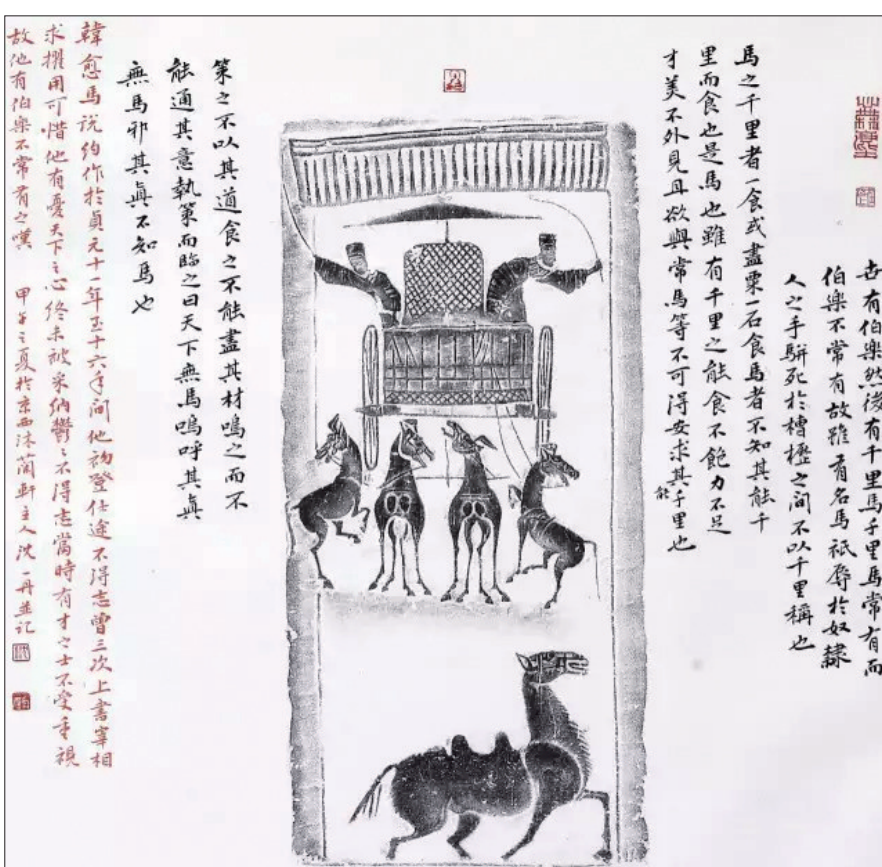 世有伯樂然後有千里馬千里馬常有而
伯樂不常有故雖有名馬祇辱於奴隸
人之手駢死於槽櫪之間不以千里稱也
馬之千里者一食或盡粟一石食馬者不知其能千
里而食也是馬也雖有千里之能食不飽力不足
才美不外見且欲與常馬等不可得安求其能千里也
策之不以其道食之不能盡其材鳴之而不
能通其意執策而臨之曰天下無馬嗚呼其眞
無馬邪其眞不知馬也
韓愈馬説約作於貞元十一年至十六年间他初登仕途不得志曾三次上書宰相
求擢用可惜他有憂天下之心終未被采納鬱々不得志當時有才之士不受重視
故他有伯樂不常有之嘆 甲午之夏於京西沐蘭軒主人沈一丹並记